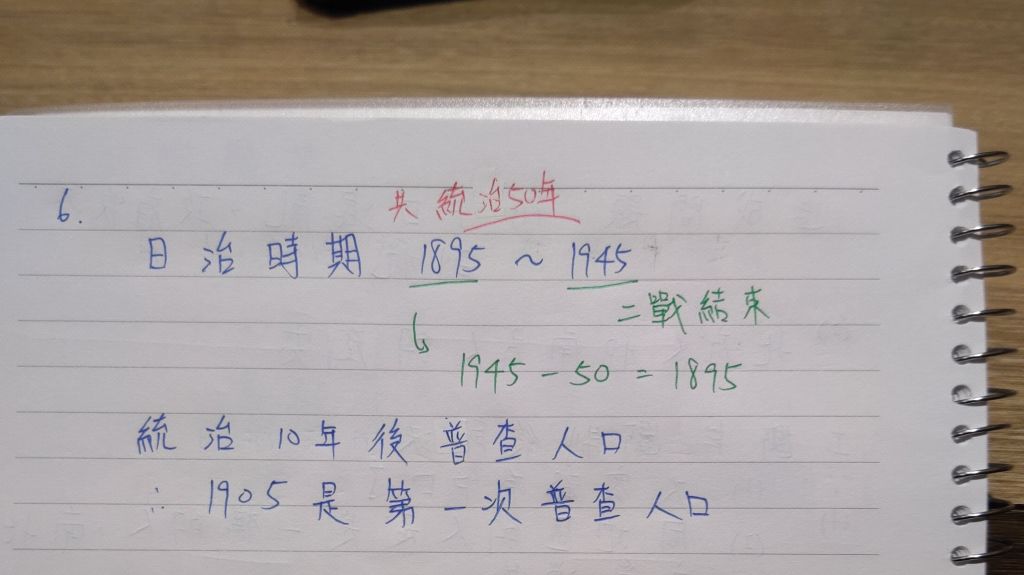 6.
共統治50年
日治時期 1895 ~ 1945
二戰結束
↳ 1945 - 50 = 1895
統治10年後普查人口
∴ 1905是第一次普查人口